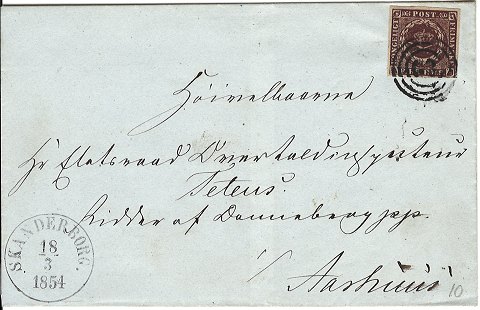 KONGELIGT POST FRIMÆRKE
Høivelbaarne
Hr Etatsraad Overtoldinspecteur
Teteus.
Ridder af Dannebrog pp.
i/ Aarhuus
SKANDERBORG.
18
3
1854
10